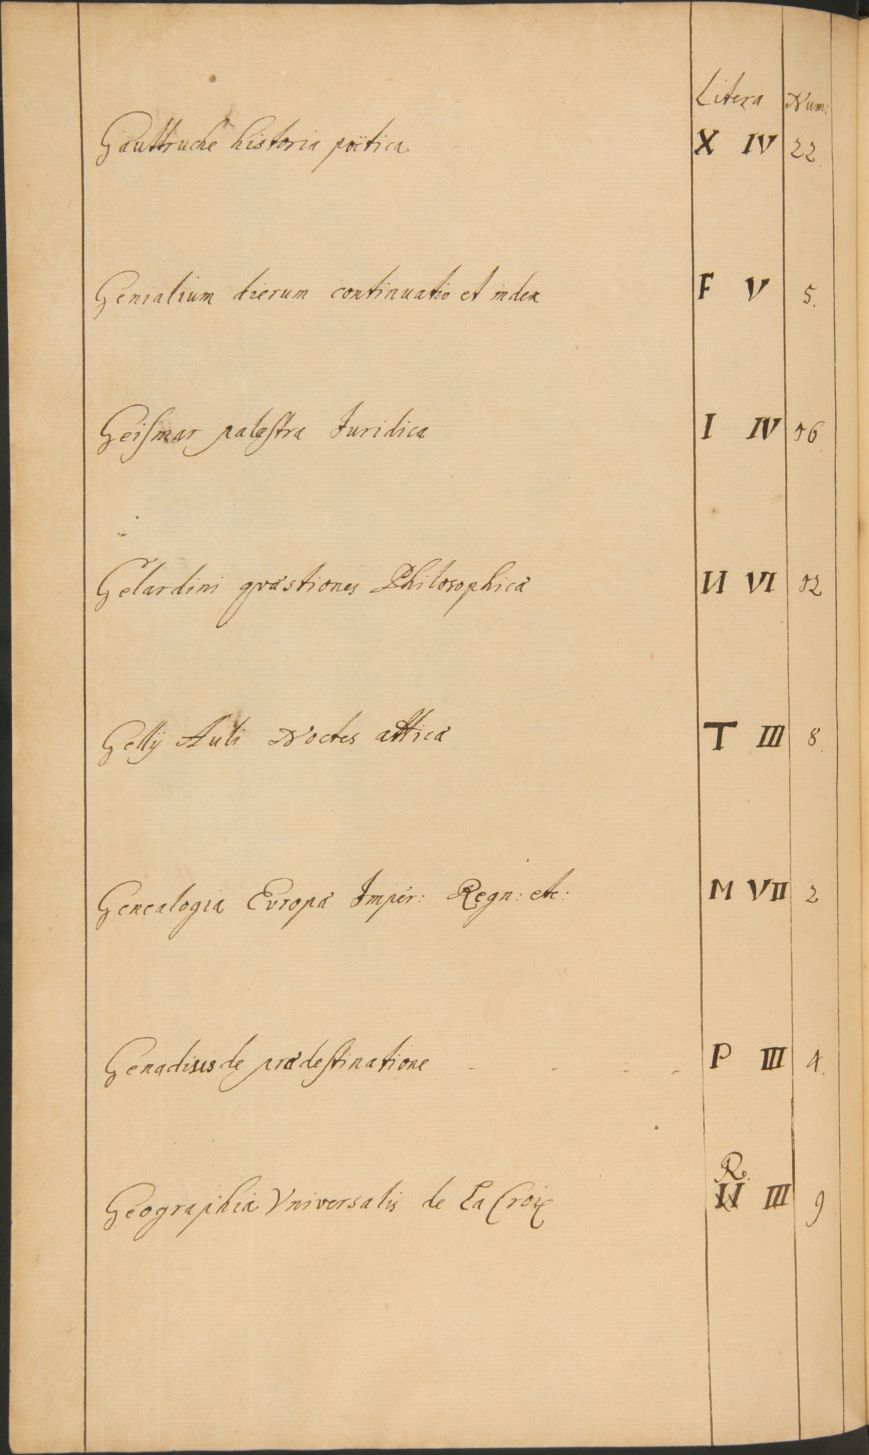 Litera Num:
Gauttruche historia poëtica X IV 22.
Genialium dierum continuatio et index F V 5.
Geismar palæstra Iuridica I IV 16
Gelardini qvæstiones Philosophicæ VI 12
Gellij Auli Noctes atticæ T III 8.
Genealogia Evropæ Imper: Regn: etc: M VII 2
Genadius de prædestinatione P III 4.
R.
Geographia Vniversalis de La Croix III 9